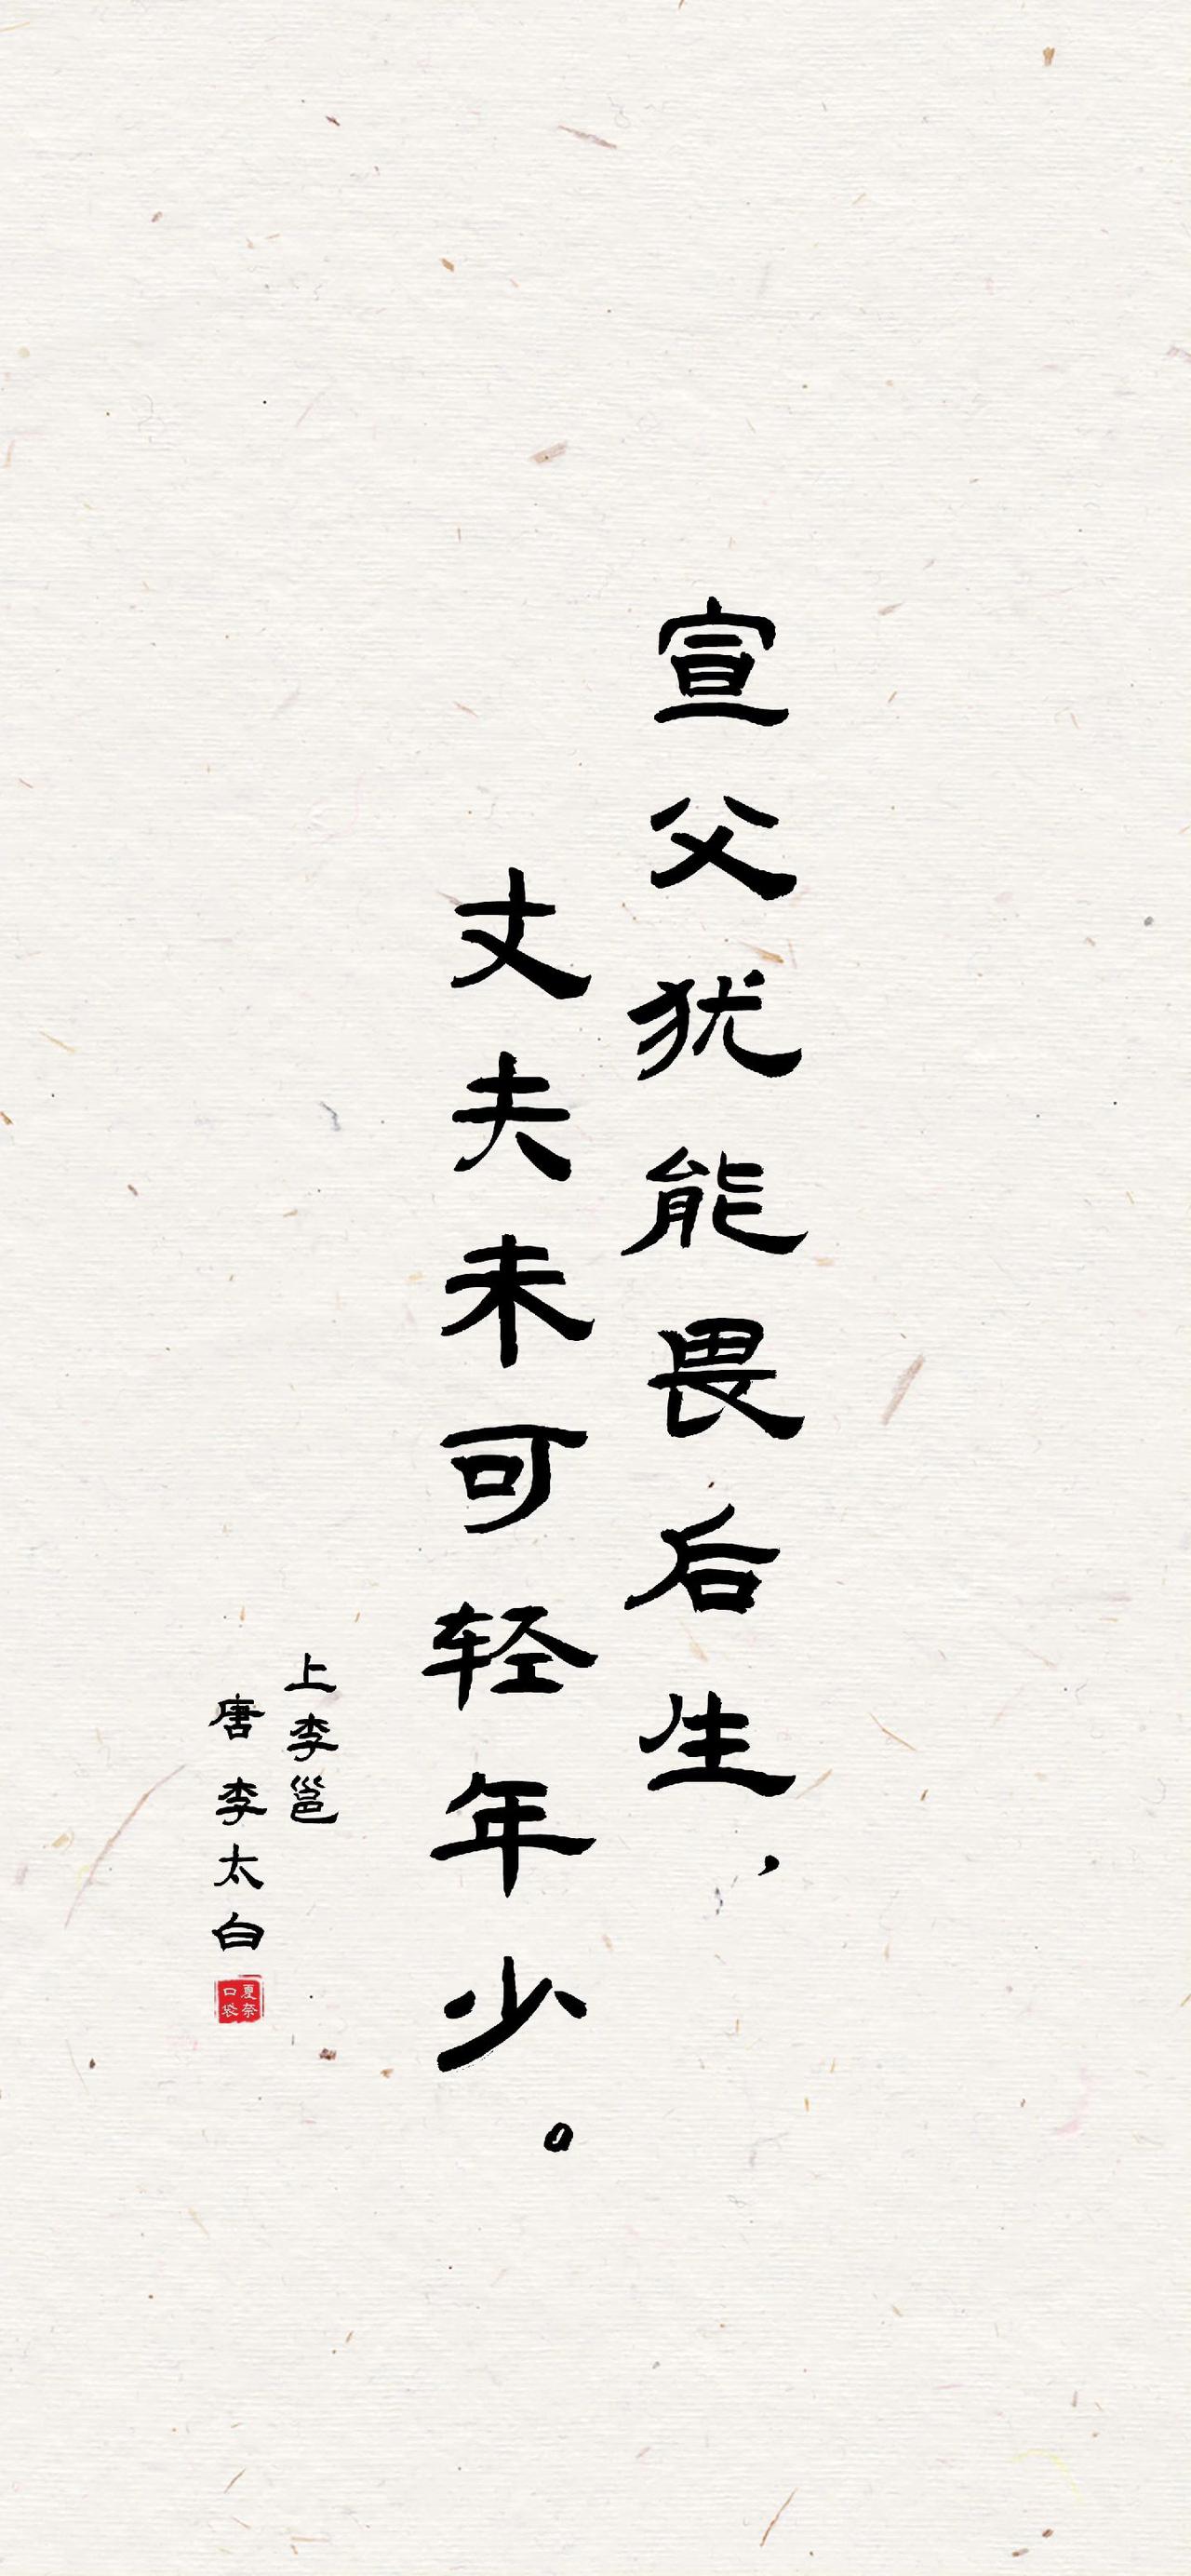 宣父犹能畏后生，
丈夫未可轻年少。
上李邕
唐 李太白
夏奈
口袋